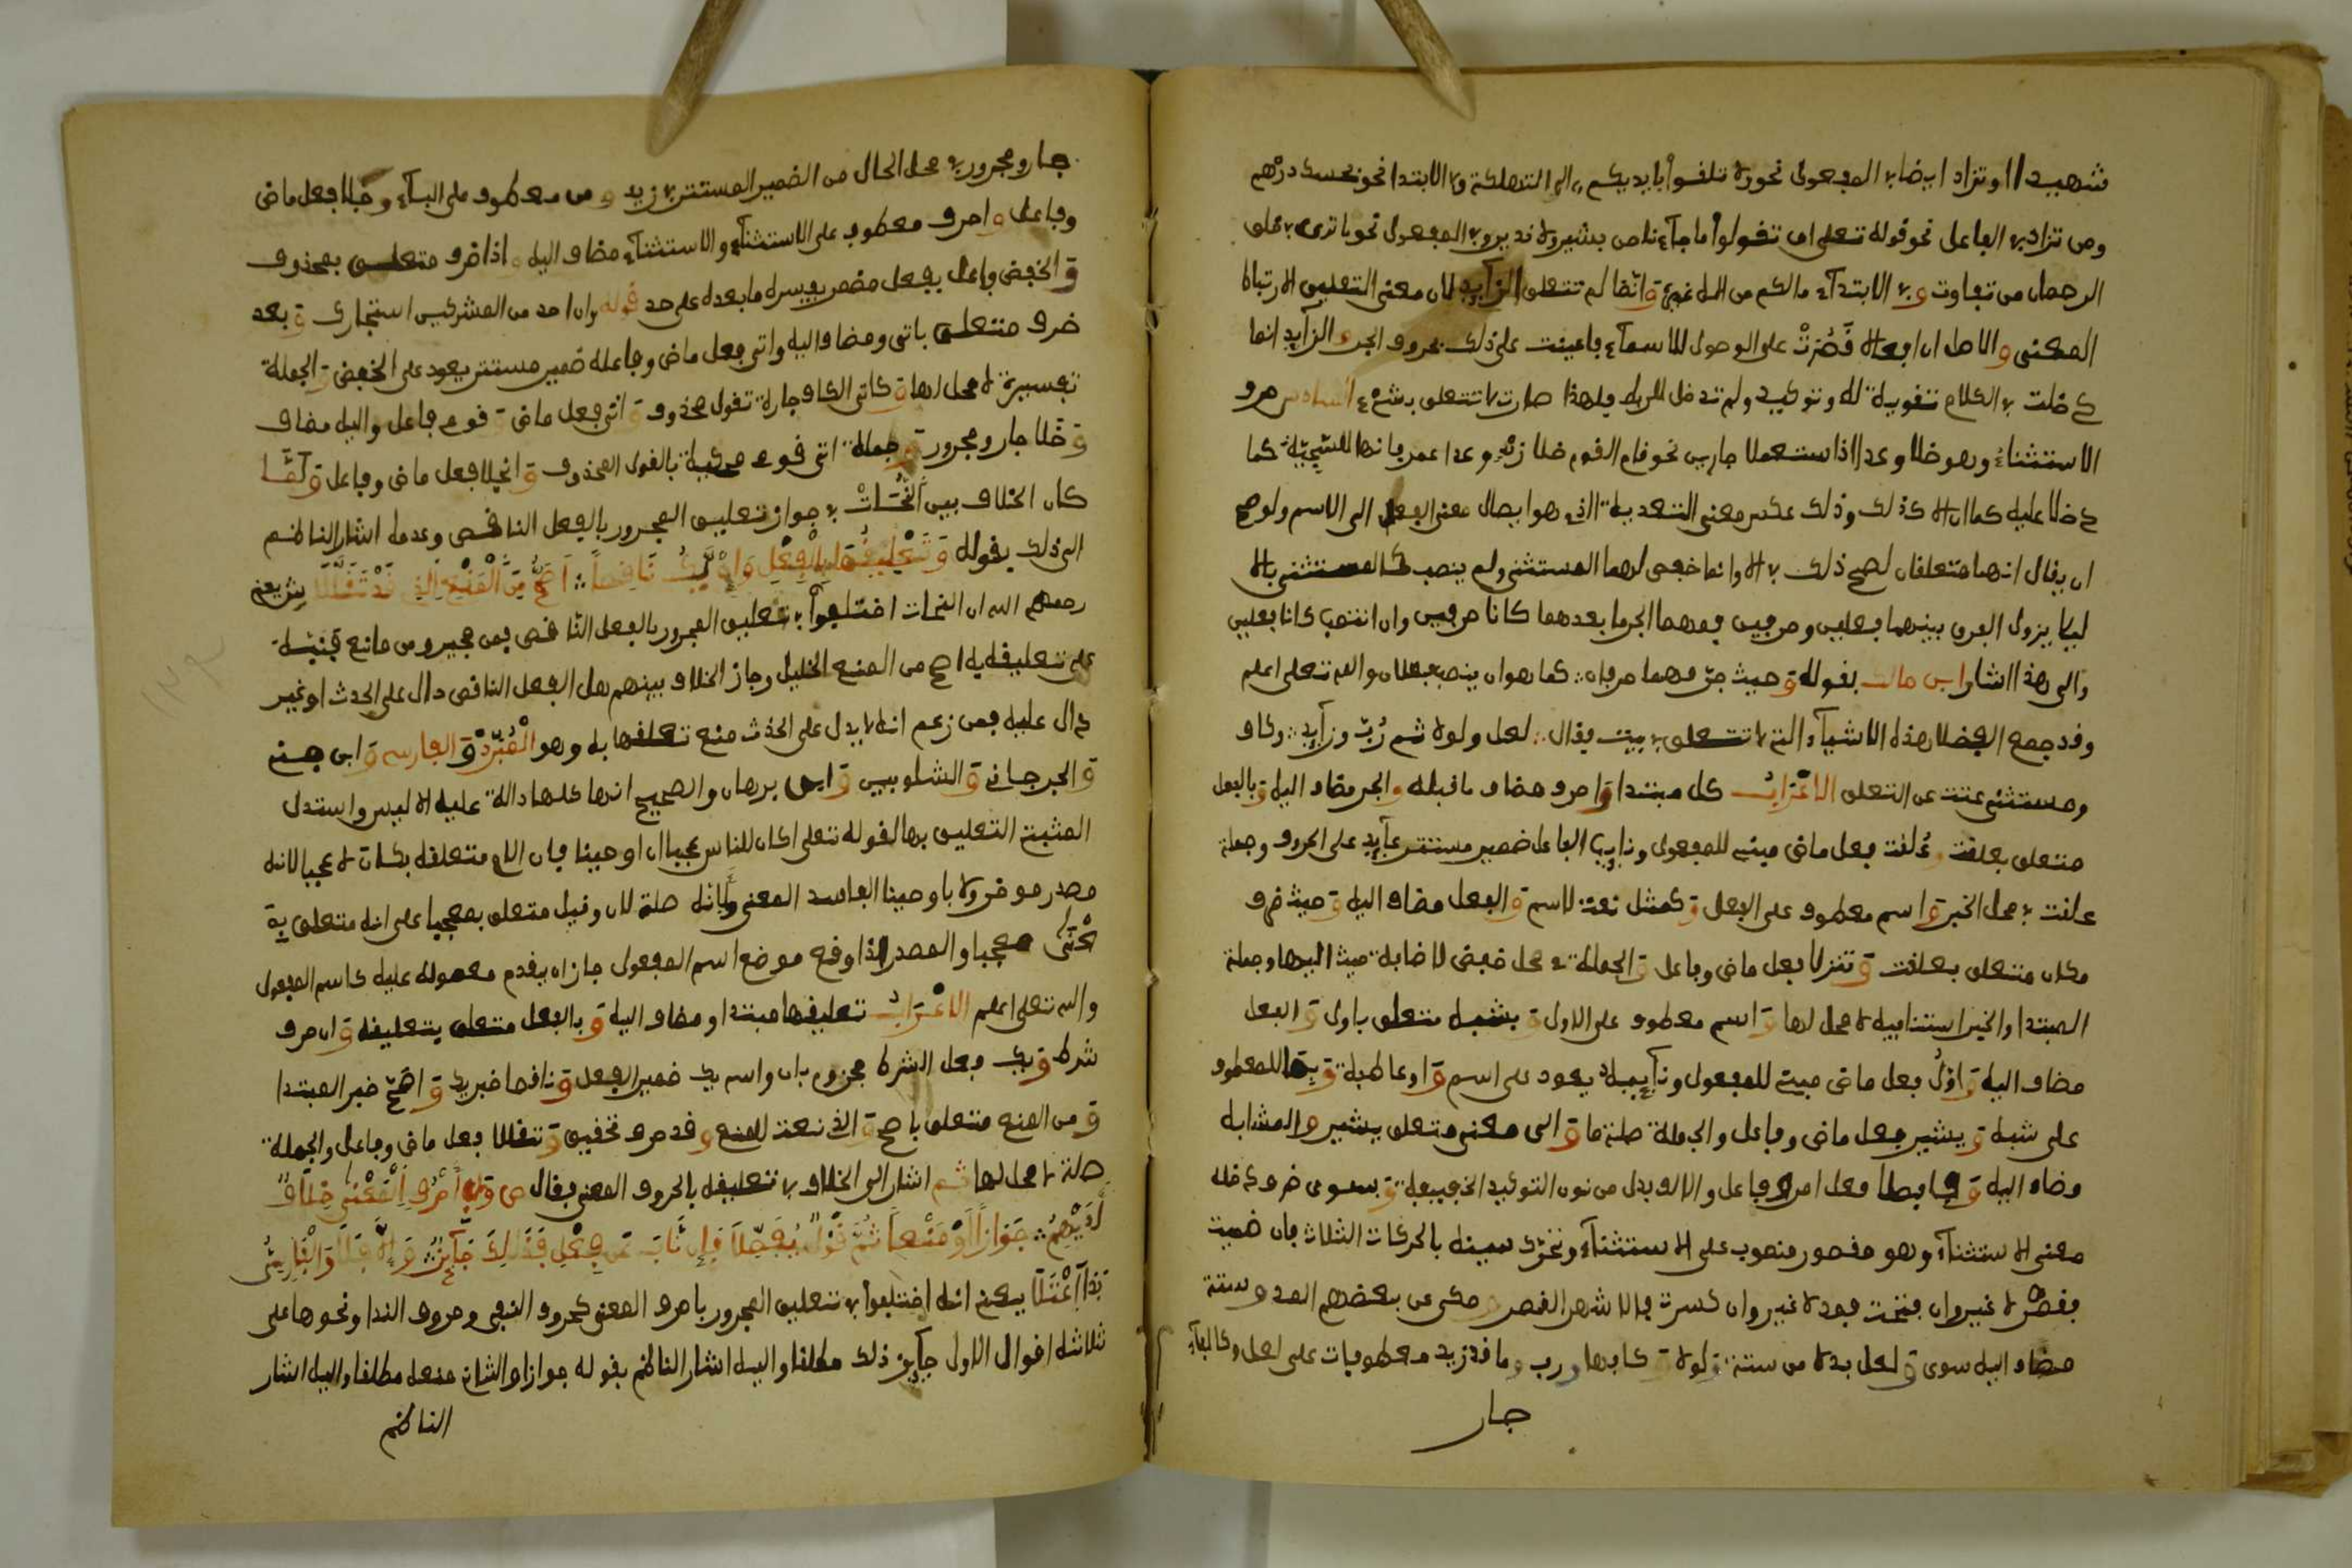 شهيدا او تزاد ايضا في المفعول نحو ولا تلقوا بايديكم الى التهلكة وفي الابتدا نحو بحسبك درهم
ومن تزاد في الفاعل نحو قوله تعلى ان تقولوا ما جآءنا من بشير ولا نذير وفي المفعول نحو ما ترى في خلق
الرحمان من تفاوت وفي الابتدآء ما لكم من اله غيره وانما لم تتعلق الزآيد لان معنى التعليق الارتباط
المعنى والاصل ان افعالا قصرت على الوصول للاسمآء فاعينت على ذلك بحروف الجر والزآيد انما
دخلت في الكلام تقوية له وتوكيد ولم تدخل للربط فلهذا صارت لا تتعلق بشيء السادس حرف
الاستثناء وهو خلا وعدا اذا استعملا جارين نحو قام القوم خلا زيد وعدا عمرو فانها للتنحية كما
دخلا عليه كما ان الا كذلك وذلك عكس معنى التعدية الذي هو ايصال معنى الفعل الى الاسم ولو صح
ان يقال انهما متعلقان لصح ذلك في الا وانما خفض لهما المستثنى ولم ينصب كالمستثنى بالا
ليلا يزول الفرق بينهما فعلين وحرفين فهما الجر ما بعدهما كانا حرفين وان انتصب كانا فعلين
والى هذا اشار ابن مالك بقوله وحيث جرا فهما حرفان كما هو ان ينصب فعلان والله تعلى اعلم
وقد جمع الفضلا هذه الاشيآء التي لا تتعلق في بيت فقال لعل ولولا ثم رب وزآيد وكاف
ومستثنى عنت عن التعلق الاعراب كل مبتدا واحرف مضاف ما قبله والجر مضاف اليه وبالفعل
متعلق بعلقت وعلقت فعل ماض مبني للمفعول ونايب الفاعل ضمير مستتر عآيد على الحروف وجملة
علقت في محل الخبر واسم معطوف على الفعل وكمثل نعت لاسم والفعل مضاف اليه وحيث ظرف
مكان متعلق بعلقت وتنزلا فعل ماض وفاعل والجملة في محل خفض لاضافة حيث اليها وجملة
المبتدا والخبر استينافية لا محل لها واسم معطوف على الاول وبشبه متعلق باول والفعل
مضاف اليه واول فعل ماض مبني للمفعول ونآيبه يعود على اسم واو عاطفة وبما للمعطوف
على شبه ويشير فعل ماض وفاعل والجملة صلة ما والى معنى متعلق بيشير والمشابه
مضاف اليه فعل امر وفاعل والالف بدل من نون التوكيد الخفيفة وسوى ظرف دخله
معنى الاستثنآء وهو مقصور منصوب على الاستثنآء وتحرك سينه بالحركات الثلاث فان ضميت
فقصر لا غير وان فتحت فمد لا غير وان كسرت فالاشهر القصر وحكى عن بعضهم المد وستة
مضاف اليه سوى ولعل بدلا من ستة ولولا وكافها ورب وما قد زيد معطوفات على لعل وكالبآء
جار
جار ومجرور في محل الحال من الضمير المستتر في زيد ومن معطوف على البآء وخلا فعل ماض
وفاعل واحرف معطوف على الاستثنآء والاستثنآء مضاف اليه اذا ظرف متعلق بمحذوف
والخفض فاعل بفعل مضمر يفسره ما بعده على حد قوله وان احد من المشركين استجارك وبعد
ظرف متعلق باتى ومضاف اليه واتى فعل ماض وفاعله ضمير مستتر يعود على الخفض والجملة
تفسيرية لا محل لها وكاتى الكاف جارة لقول محذوف واتى فعل ماض وقوم فاعل واليه مضاف
وخلا جار ومجرور وجملة اتى قوم محكية بالقول المحذوف وانجلا فعل ماض وفاعل ولما
كان الخلاف بين النحات في جواز تعليق المجرور بالفعل الناقص وعدمه اشار الناظم
الى ذلك بقوله وتعليقها بالفعل وان يك ناقصا اصح من المنع الذي قد تنقلا ش يعني
رحمهم الله ان النحات اختلفوا في تعليق المجرور بالفعل الناقص فمن مجيز ومن مانع
على تعليقه به اصح من المنع الخليل وجاز الخلاف بينهم هل الفعل الناقص دال على الحدث او غير
دال عليه فمن زعم انه لا يدل على الحدث منع تعلقها به وهو المبرد والفارسي وابن جني
والجرجاني والشلوبين وابن برهان والصحيح انها كلها دالة عليه الا ليس واستدل
المثبت التعليق بها لقوله تعلى اكان للناس عجبا ان اوحينا فان اللام متعلقه بكان لا عجبا لانه
مصدر موخر ولا باوحينا لفاسد المعنى ولانه صلة لان وقيل متعلق بمعجبا على انه متعلق به
معجبا والمصدر اذا وقع موضع اسم المفعول جاز ان يقدم معموله عليه كاسم المفعول
والله تعلى اعلم الاعراب تعليقها مبتدا ومضاف اليه وبالفعل متعلق بتعليقه وان حرف
شرط ويك فعل الشرط مجزوم بان واسم يك ضمير الفعل وناقصا خبر يك واصح خبر المبتدا
ومن المنع متعلق باصح والذي نعت للمنع وقد حرف تحقيق وتنقلا فعل ماض وفاعل والجملة
صلة لا محل لها ثم اشار الى الخلاف في تعليقه بالحروف المعنى فقال ص وفي احرف المعنى خلاف
لديهم جوازا او منعا ثم قول يفصلا فان ناب عن فعل فذلك جآيز والا فلا والفارسي
بذا اعتلا يعني انه اختلفوا في تعليق المجرور باحرف المعنى كحروف النفي وحروف الندا ونحوها على
ثلاثة اقوال الاول جآيز ذلك مطلقا واليه اشار الناظم بقوله جوازا والثاني منعه مطلقا واليه اشار
الناظم